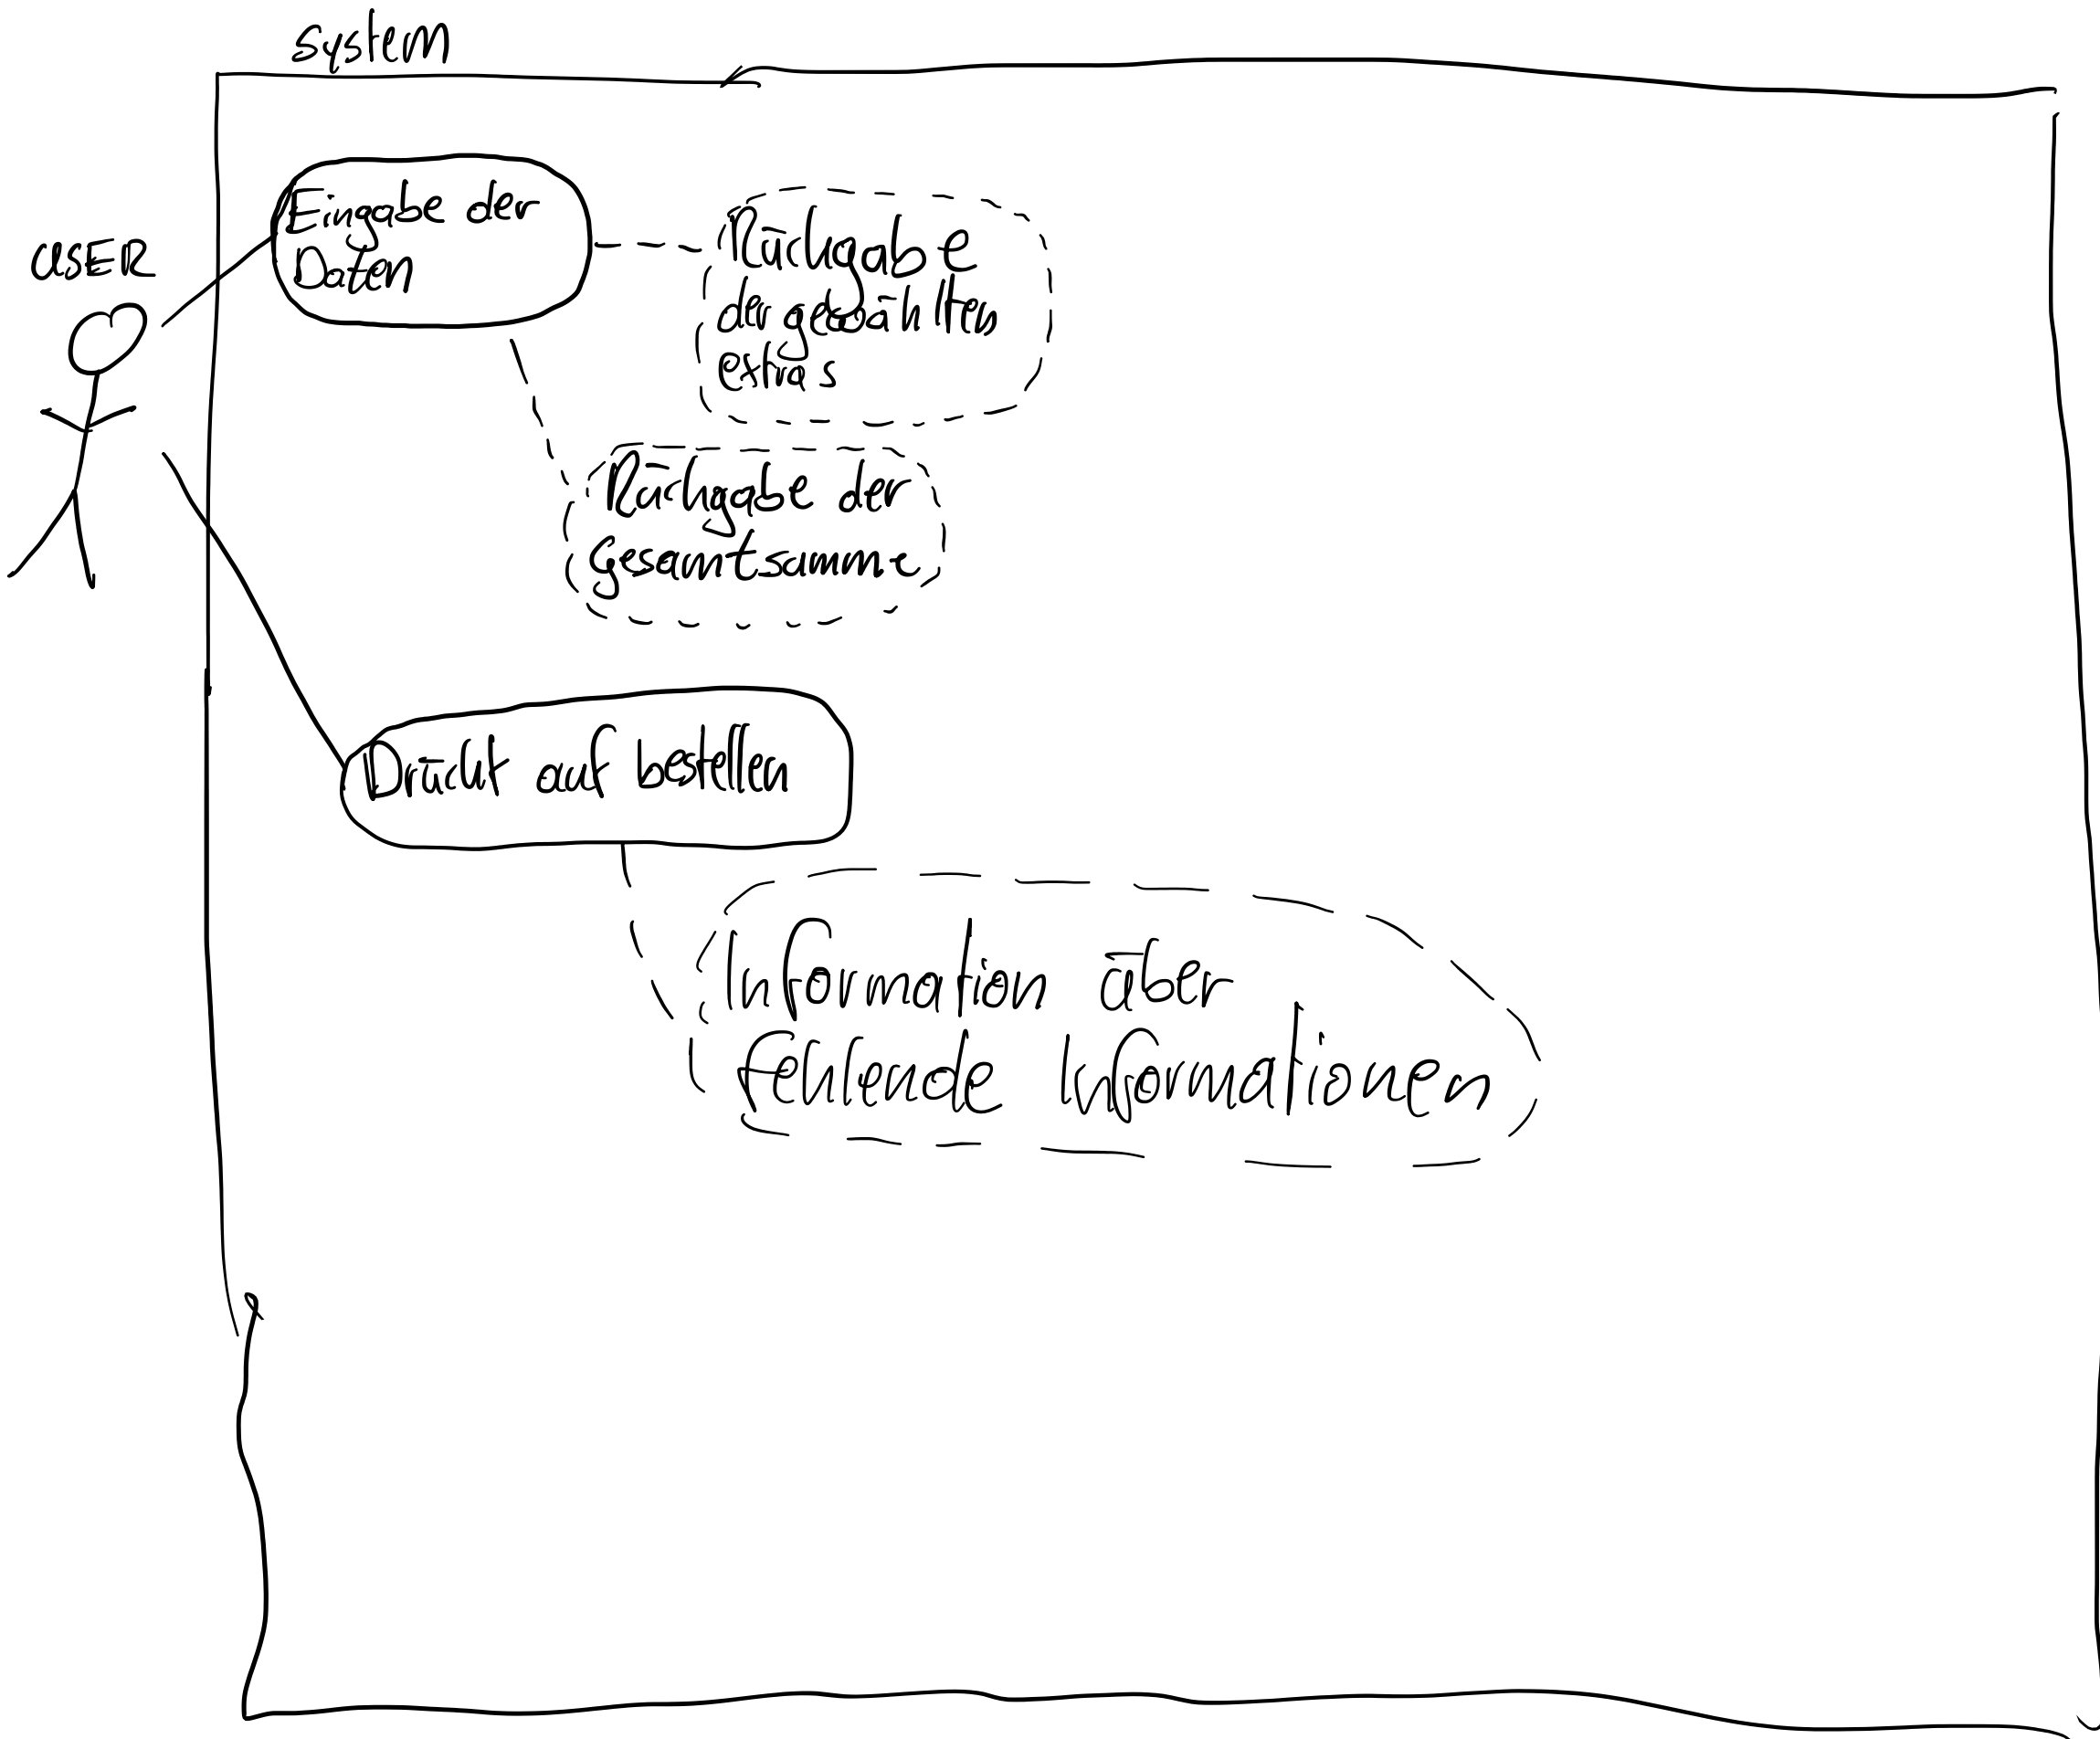 System
USER
Eingabe der
Daten
Rückgabe
der ausgewählten
extras
Rückgabe der
Gesamtsumme
Drückt auf bestellen
Information über
fehlende Informationen